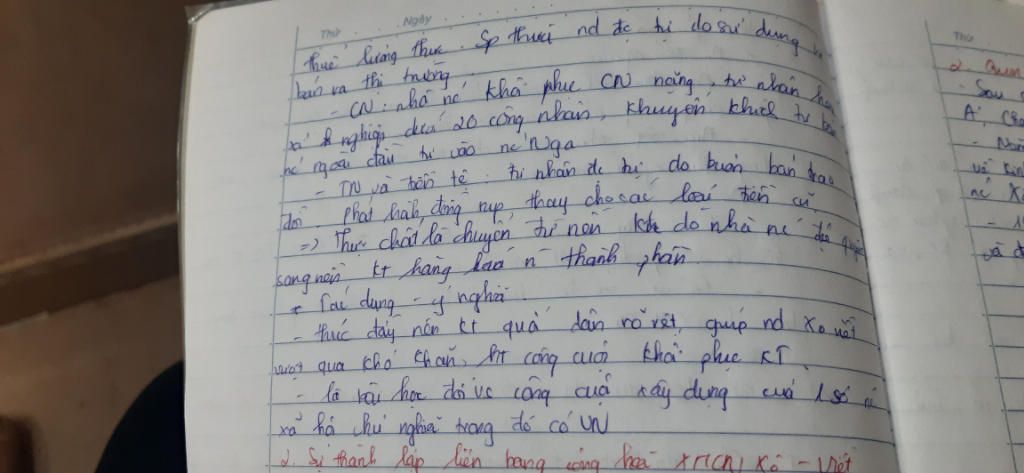 Thứ Ngày
thuế lương thực. Sp thuế nd đc tự do sử dụng
bán ra thị trường
- CN: nhà nc khôi phục CN nặng, tư nhân hoá
xí nghiệp dưới 20 công nhân, khuyến khích tư bản
nc ngoài đầu tư vào nc Nga
- TN và tiền tệ: tư nhân đc tự do buôn bán trao
đổi phát hành đồng rup thay cho các loại tiền cũ
=> Thực chất là chuyển từ nền kt do nhà nc độc quyền
sang nền kt hàng hoá n thành phần
* Tác dụng - ý nghĩa
- thúc đẩy nền kt quốc dân rõ rệt, giúp nd Xô viết
vượt qua khó khăn, ht công cuộc khôi phục KT
- là bài học đối vs công cuộc xây dựng của 1 số nc
xã hội chủ nghĩa trong đó có VN
2. Sự thành lập liên bang cộng hoà XHCN Xô - Viết
Thứ
2. Quan
- Sau
Á, Châu
- Năm
về
nc
và